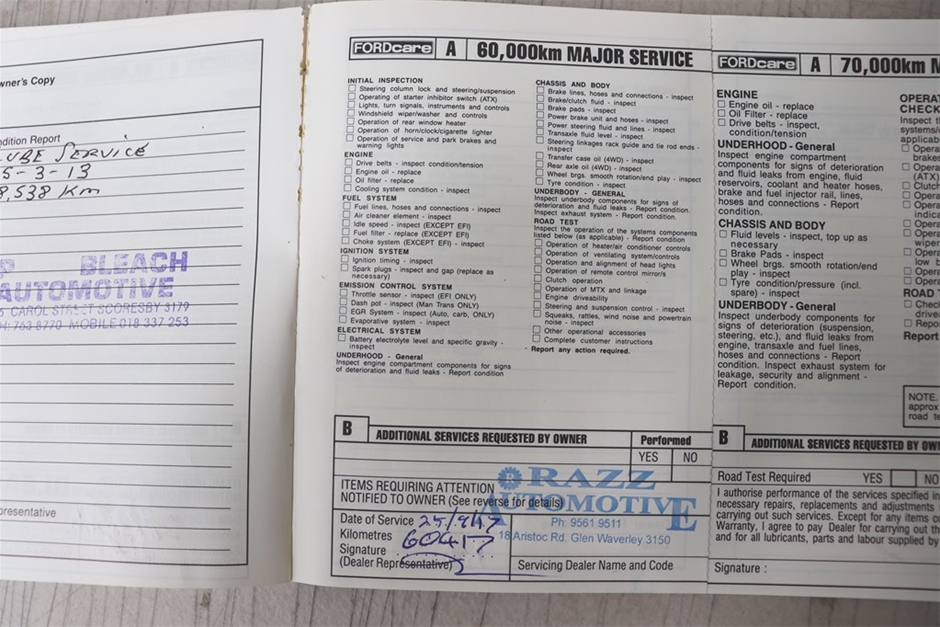 wner's Copy
ndition Report
UBE SERVICE
5-3-13
8,538 Km
P BLEACH
AUTOMOTIVE
CAROL STREET SCORESBY 3179
H: 763 8770 MOBILE 018 337 253
presentative
FORDcare A 60,000km MAJOR SERVICE
INITIAL INSPECTION
Steering column lock and steering/suspension
Operating of starter inhibitor switch (ATX)
Lights, turn signals, instruments and controls
Windshield wiper/washer and controls
Operation of rear window heater
Operation of horn/clock/cigarette lighter
Operation of service and park brakes and
warning lights
ENGINE
Drive belts - inspect condition/tension
Engine oil - replace
Oil filter - replace
Cooling system condition - inspect
FUEL SYSTEM
Fuel lines, hoses and connections - inspect
Air cleaner element - inspect
Idle speed - inspect (EXCEPT EFI)
Fuel filter - replace (EXCEPT EFI)
Choke system (EXCEPT EFI) - inspect
IGNITION SYSTEM
Ignition timing - inspect
Spark plugs - inspect and gap (replace as
necessary)
EMISSION CONTROL SYSTEM
Throttle sensor - inspect (EFI ONLY)
Dash pot - inspect (Man Trans ONLY)
EGR System - inspect (Auto, carb, ONLY)
Evaporative system - inspect
ELECTRICAL SYSTEM
Battery electrolyte level and specific gravity -
inspect
UNDERHOOD - General
Inspect engine compartment components for signs
of deterioration and fluid leaks - Report condition
CHASSIS AND BODY
Brake lines, hoses and connections - inspect
Brake/clutch fluid - inspect
Brake pads - inspect
Power brake unit and hoses - inspect
Power steering fluid and lines - inspect
Transaxle fluid level - inspect
Steering linkages rack guide and tie rod ends -
inspect
Transfer case oil (4WD) - inspect
Rear axle oil (4WD) - inspect
Wheel brgs. smooth rotation/end play - inspect
Tyre condition - inspect
UNDERBODY - GENERAL
Inspect underbody components for signs of
deterioration and fluid leaks - Report condition.
Inspect exhaust system - Report condition.
ROAD TEST
Inspect the operation of the systems components
listed below (as applicable) - Report condition
Operation of heater/air conditioner controls
Operation of ventilating system/controls
Operation and alignment of head lights
Operation of remote control mirror/s
Clutch operation
Operation of MTX and linkage
Engine driveability
Steering and suspension control - inspect
Squeaks, rattles, wind noise and powertrain
noise - inspect
Other operational accessories
Complete customer instructions
· Report any action required.
B ADDITIONAL SERVICES REQUESTED BY OWNER Performed
YES NO
ITEMS REQUIRING ATTENTION
NOTIFIED TO OWNER (See reverse for details)
RAZZ
AUTOMOTIVE
Ph: 9561 9511
18 Aristoc Rd. Glen Waverley 3150
Date of Service
Kilometres 60417
Signature
(Dealer Representative)
Servicing Dealer Name and Code
FORDcare A 70,000km M
ENGINE
Engine oil - replace
Oil Filter - replace
Drive belts - inspect,
condition/tension
UNDERHOOD - General
Inspect engine compartment
components for signs of deterioration
and fluid leaks from engine, fluid
reservoirs, coolant and heater hoses,
brake and fuel injector rail, lines,
hoses and connections - Report
condition.
CHASSIS AND BODY
Fluid levels - inspect, top up as
necessary
Brake Pads - inspect
Wheel brgs. smooth rotation/end
play - inspect
Tyre condition/pressure (incl.
spare) - inspect
UNDERBODY - General
Inspect underbody components for
signs of deterioration (suspension,
steering, etc.), and fluid leaks from
engine, transaxle and fuel lines,
hoses and connections - Report
condition. Inspect exhaust system for
leakage, security and alignment -
Report condition.
OPERAT
CHECK
Inspect th
systems/
applicab
Opera
brakes
Opera
(ATX)
Clutch
Opera
Opera
indica
Opera
Opera
wiper
Opera
low b
Opera
Opera
ROAD T
Check
drive
Repo
Report
NOTE.
approx
road te
B ADDITIONAL SERVICES REQUESTED BY OWN
Road Test Required YES NO
I authorise performance of the services specified in
necessary repairs, replacements and adjustments
carrying out such services. Except for any items c
Warranty, I agree to pay Dealer for carrying out th
and for all lubricants, parts and labour supplied by
Signature :